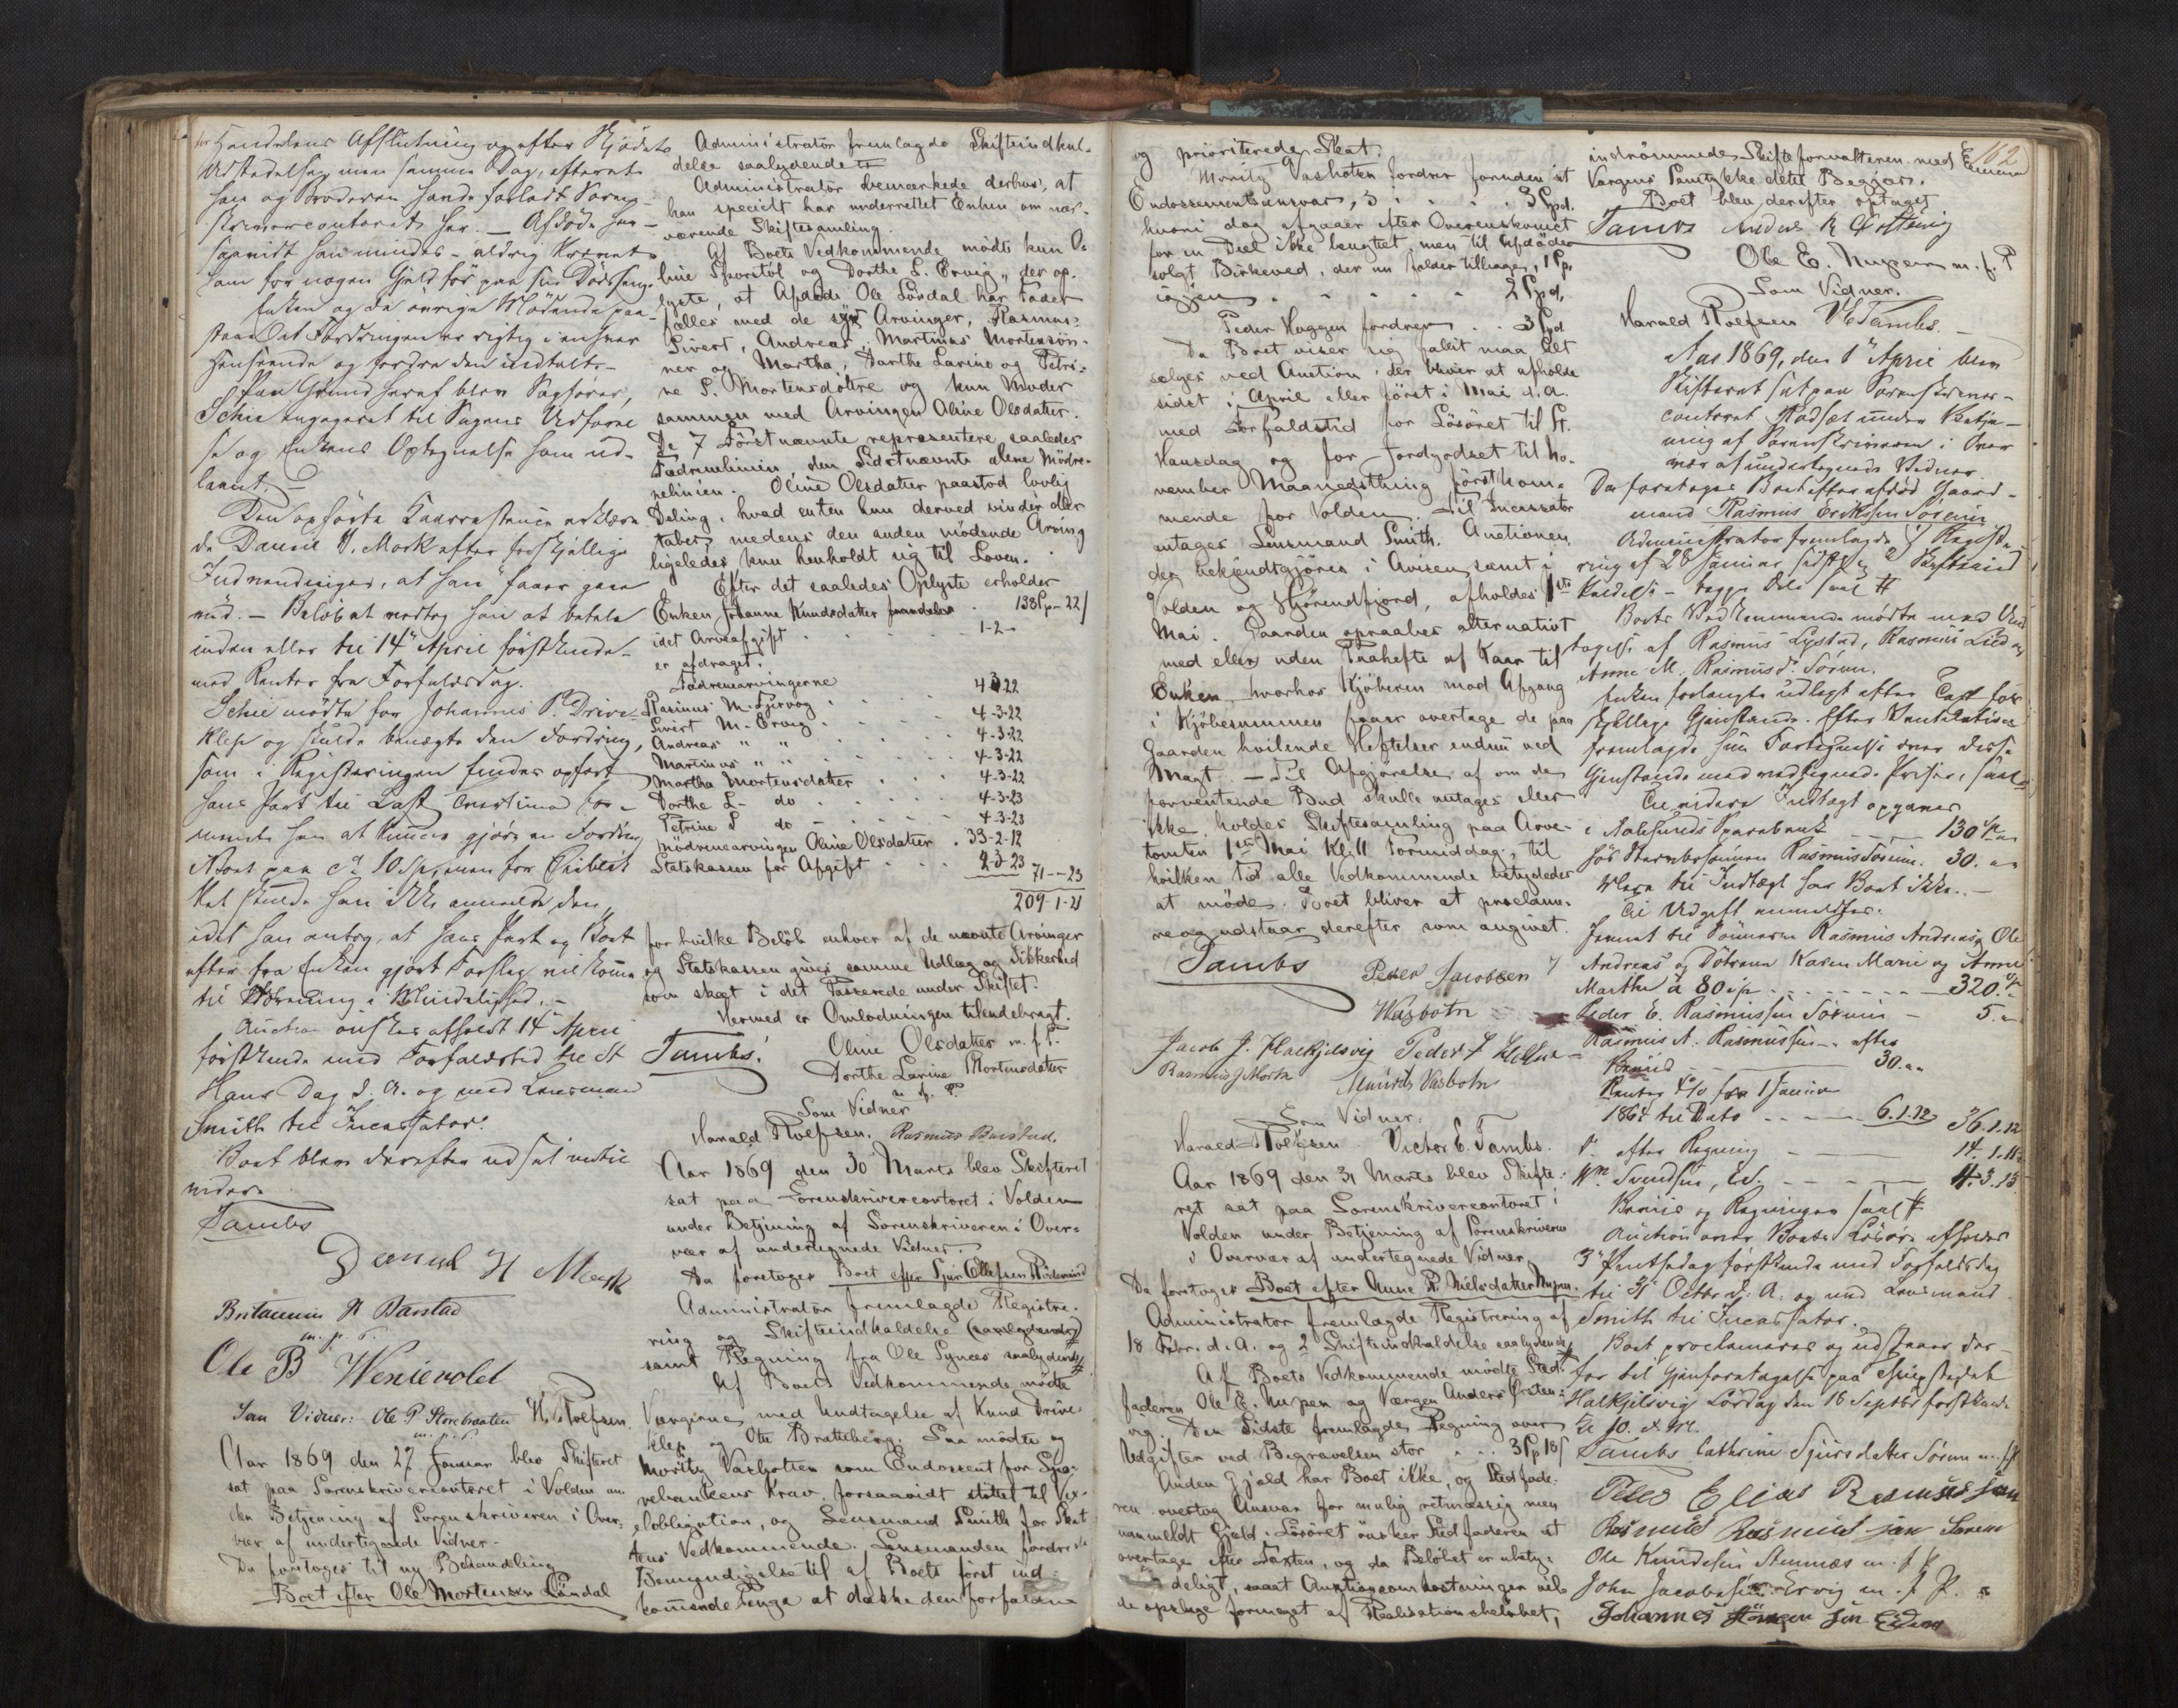 for Handelens Afslutning og efter Skjødets
Udstedelse, men samme Dag, efterat
han og Broderen havde forladt Soren-
skrivercontoret her. — Afdøde har
saavidt han mindes – aldrig krævet
ham for nogen Gjeld før paa sin Dødsseng.
Enken og de øvrige Mødende paa-
staar at Fordringen er rigtig i enhver
Henseende og fordre den indtalt. –
Paa Grund heraf blev Sagfører
Schie engageret til Sagens Udførel
se og Enkens Optegnelse ham ud-
laant.
Den opførte Kaarrestance erklære-
de Daniel H. Mork efter forskjellige
Indvendinger, at han faaer gaa
ind. – Beløbet vedtog han at betale
inden eller til 14de April førstkom̄ende
med Renter fra Forfaldsdag.
Schie mødte for Johannes P. Drive-
klep og skulde benægte den Fordring,
som i Registreringen findes opført
hans Part til Last
mente han at kunne gjøre en Fordring
Boet paa ca 10 Spd, men for
Skyld skulde han ikke anmelde den,
idet han antog, at hans Part og Boet
efter fra Enken gjort Forslag vil komme
til Ordning i Mindelighed. –
Auction ønskes afholdt 14de April
førstkom̄ende med Forfaldstid til St
Hans Dag d. A. og med Lensmand
Smith til Incassator.
Boet blev derefter udsat indtil
videre
Tambs
Daniel H Mork
Britanius H Barstad
m. p. P.
Ole B Wenievolet
Som Vidner: Ole P Storebraaten H. Rolfsen.
m. p. P.
Aar 1869 den 27 Januar blev Skifteret
sat paa Sorenskrivercontoret i Volden un
der Betjening af Sorenskriveren i Over-
vær af undertegnede Vidner.
Da foretoges til ny Behandling
Boet efter Ole Mortensen Løndal
Administrator fremlagde Skifteindkal-
delse saalydende
Administrator bemærkede derhos, at
han specielt har underrettet Enken om nær-
værende Skiftesamling.
Af Boets Vedkommende mødte kun O-
line Sporstøl og Dorthe L. Ervig, der op-
lyste, at Afdøde Ole Løndal har Fader
fælles med de syv Arvinger, Rasmus,
Sivert, Andreas, Martinus Mortensøn-
ner og Martha, Dorthe Larine og Petri-
ne L. Mortensdøtre og kun Moder
sammen med Arvingen Oline Olsdatter.
De 7 Førstnævnte repræsentere saaledes
Fædrenelinien, den Sidstnævnte alene Mødre-
nelinien. Oline Olsdatter paastod lovlig
Deling, hvad enten hun derved vinder eller
taber, medens den anden mødende Arving
ligeledes kun henholdt sig til Loven.
Efter det saaledes Oplyste erholder
Enken Johanne Knudsdatter fremdeles . 138 Sp – 22 s
idet Arveafgift . . . . 1-2-
er afdraget.
Fædrenearvingerne
Rasmus M. Fjørvog . . . 4-3-22
Sivert M. Ervig . . . 4-3-22
Andreas " " . . . 4-3-22
Martinus " " . . . 4-3-22
Martha Mortensdatter . . . 4-3-22
Dorthe L- do . . . 4-3-23
Petrine L do . . . 4-3-23
Mødrenearvingen Oline Olsdatter . 33-2-12
Statskassen for Afgift . . . 2-3-23 71--23
209-1-21
for hvilke Beløb enhver af de nævnte Arvinger
og Statskassen gives samme Udlæg og Sikkerhed
som skeet i det Passerede under Skiftet.
Hermed er Omlodningen tilendebragt.
Tambs. Oline Olsdatter m. f. P.
Dorthe Larine Mortensdatter
m. f. P.
Som Vidner
Harald Rolfsen. Rasmus Barstad.
Aar 1869 den 30 Marts blev Skifteret
sat paa Sorenskrivercontoret i Volden
under Betjening af Sorenskriveren i Over-
vær af undertegnede Vidner.
Da foretoges Boet efter Sjur Ellefsen Rødesund
Administrator fremlagde Registre-
ring og Skifteindkaldelse (saalydende)
samt Regning fra Ole Synæs saalydende
Af Boets Vedkommende mødte
Værgerne med Undtagelse af Knud Drive-
klep og Ole Bratteberg. Saa mødte og
Mouritz Vasbotten som Endossent for Spa-
rebankens Krav, forsaavidt støttet til Vex-
elobligation, og Lensmand Smith for Skat-
tens Vedkommende. Lensmanden fordrede
Bemyndigelse til af Boets først ind-
kom̄ende Penge at dække den forfaldne
og prioriterede Skat.
Mouritz Vasbotten fordrer foruden sit
Endossementsansvar, 3 . . . 3 Spd.
hvori dog afgaaer efter Overenskomst
for en Deel ikke benyttet, men til Afdøde
solgt Birkeved, der nu falder tilbage, 1 Sp,
igjen . . . . . 2 Spd.
Peder Haggen fordrer . . 3 Spd
Da Boet viser sig fallit maa Alt
sælges ved Auction, der bliver at afholde
sidst i April eller først i Mai d. A.
med Forfaldstid for Løsøret til St.
Hansdag og for Jordgodset til No-
vember Maanedsthing førstkom-
mende for Volden. Til Incassator
antages Lensmand Smith. Auctionen,
der bekjendtgjøres i Avisen samt i
Volden og Hjørendfjord, afholdes 1ste
Mai. Gaarden opraabes alternativt
med eller uden Paahefte af Kaar til
Enken, hvorhos Kjøberen mod Afgang
i Kjøbesummen faaer overtage de paa
Gaarden hvilende Heftelser endnu ved
Magt. – Til Afgjørelse af om de
forventende Bud skulle antages eller
ikke, holdes Skiftesamling paa Arve-
tomten 1ste Mai Kl. 11 Formiddag, til
hvilken Tid alle Vedkommende betydedes
at møde. Boet bliver at proclame-
re og udstaar derefter som angivet.
Tambs Peder Jacobsen
Wasbotn
Jacob J. Halkjelsvig Peder J
Rasmus J Mork Mouritz Vasbotn
Som Vidner.
Harald Rolfsen. Victor E. Tambs.
Aar 1869 den 31 Marts blev Skifte-
ret sat paa Sorenskrivercontoret i
Volden under Betjening af Sorenskriveren
i Overvær af undertegnede Vidner.
Da foretoges Boet efter Anne P. Nielsdatter Nupen.
Administrator fremlagde Registrering af
18 Febr. d. A. og 2 Skifteindkaldelse saalydende
Af Boets Vedkommende mødte Sted-
faderen Ole E. Nupen og Værgen Anders Østen-
vig. Den Sidste fremlagde Regning over
Udgifter ved Begravelsen stor . . . 3 Sp 18 s
Anden Gjeld har Boet ikke, og Stedfade-
ren overtog Ansvar for mulig retmæssig men
uanmeldt Gjeld. Løsøret ønsker Stedfaderen at
overtage efter Taxten, og da Beløbet er ubety-
deligt, samt Auctionsomkostninger vil-
de opsluge formeget af Realisationsbeløbet,
162
indrømmede Skifteforvalteren med
Værgens Samtykke dette Begjær.
Boet blev derefter optaget
Tambs Anders R Østenvig
Ole E. Nupen m. f. P
Som Vidner.
Harald Rolfsen V E Tambs. –
Aar 1869, den 1ste April blev
Skifteret sat paa Sorenskriver-
contoret Rødset under Betje-
ning af Sorenskriveren i Over
vær af undertegnede Vidner
Da foretoges Boet efter afdød Gaard-
mand Rasmus Eriksen Søreim
Administrator fremlagde 1 Registre-
ring af 28 Januar sidstl. og 2 Skifteind
kaldelse – begge Dele saal #
Boets Vedkommende mødte med Und
tagelse af Rasmus Lystad, Rasmus Lied og
Anne M. Rasmusdr Søreim.
Enken forlangte udlagt efter Taxt for-
skjellige Gjenstande. Efter Ventilation
fremlagde hun Fortegnelse over disse
Gjenstande med vedtegnede Priser, saal#
Til videre Indtægt opgaves
i Aalesunds Sparebank – – – 130 Sp "
hos Rasmus Søreim. 30. " "
Mere til Indtægt har Boet ikke. –
Til Udgift anmeldtes.
Hjemmel til Sønnerne Rasmus Andreas, Ole
Andreas og Døtrene Karen Marie og Anne
Marthe à 80 Sp . . . . . 320. Sp
Peder E. Rasmussen Søreim – 5. "
Rasmus A. Rasmussen – efter
Bevis 30. " "
Renter 4% fra 1 Januar
1864 til Dato – – – – 6.1.12 36.1.12
do efter Regning – – – 14. 1. 11
Wm Svendsen, – – – 4. 3. 13
Bevis og Regninger saal #
Auction over Boets Løsøre afholdes
3die Pintsedag førstkom̄ende med Forfaldsdag
til 31 Octbr d. A. og med Lensmand
Smith til Incassator.
Boet proclameres og udstaaer der-
for til Gjenforetagelse paa Thingstedet
Halkjelsvig Lørdag den 18 Septbr førstkom̄ende
Kl 10. F. M.
Tambs Cathrine Sjursdatter Søreim m. f. P.
Peder Elias Rasmussen
Rasmus Rasmussen Søreim
Ole Knudsen Stennæs m. f. P.
John Jacobsen Ervig m. f. P.
Johannes